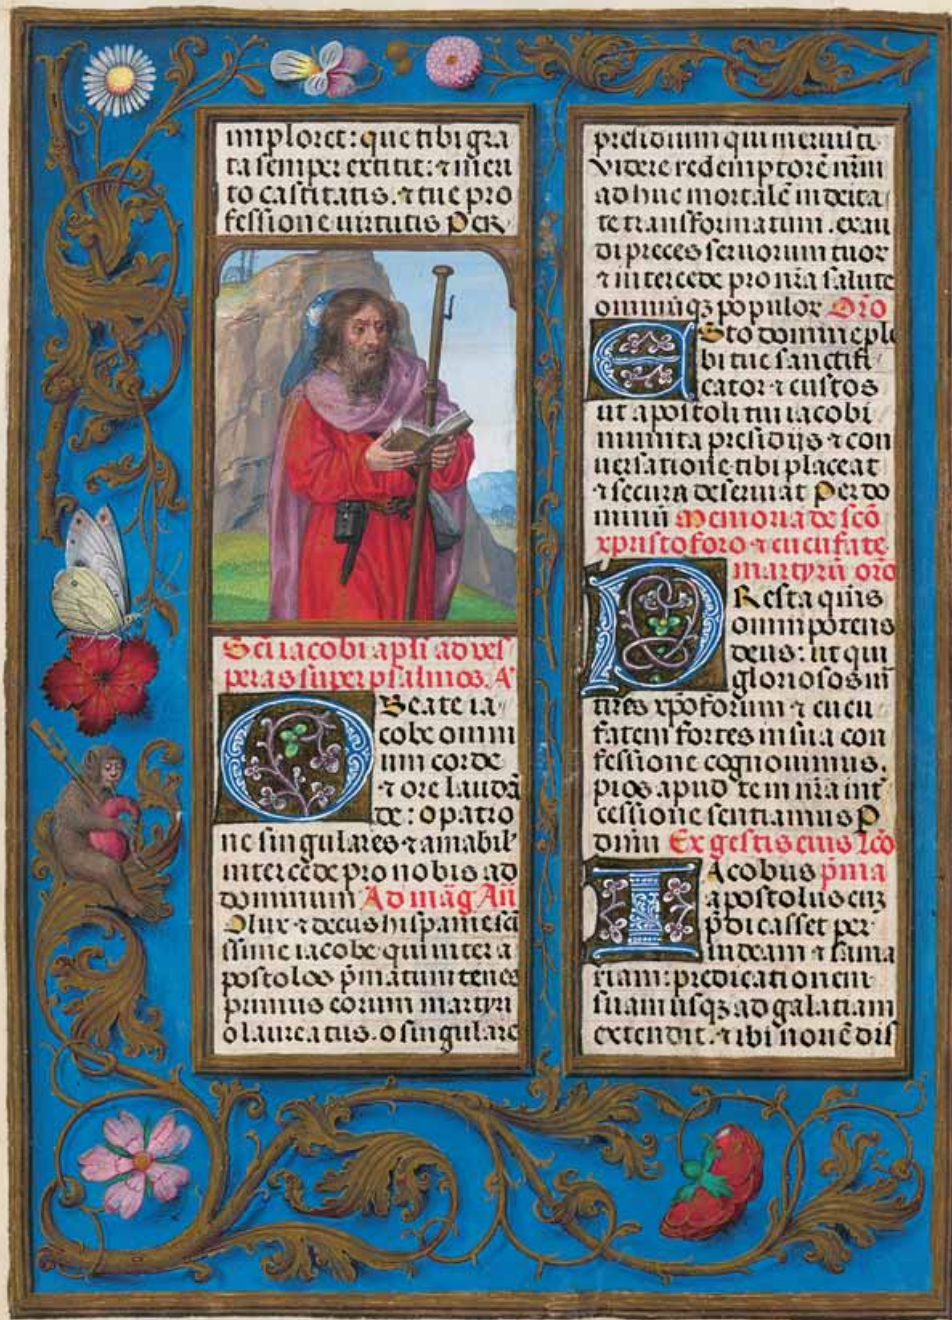 imploret: que tibi gra
ta semper extitit: ⁊ meri
to castitatis. ⁊ tue pro
fessione virtutis Per.
Sci iacobi apłi ad ves
peras super psalmos. A'
O Beate ia
cobe omni
um corde
⁊ ore laudā
de: o patro
ne singulares ⁊ amabil'
intercede pro nobis ad
dominum Ad māg Añ
O lux ⁊ decus hispanie scā
ssime iacobe qui inter a
postolos p̄matum tenes
primus eorum martyri
o laureatus. o singulare
presidium qui meruisti
videre redemptorē nr̄m
ad huc mortalē in deita
te transformatum. exau
di preces seruorum tuor
⁊ intercede pro nr̄a salute
omniūqȝ populor Or̄o
Esto domine ple
bi tue sanctifi
cator ⁊ custos
ut apostoli tui iacobi
munita presidijs ⁊ con
uersatione tibi placeat
⁊ secura deseruiat Per do
minū Memoria de scō
xpristoforo ⁊ cucufate
martyrū or̄o
PResta qm̄s
omnipotens
deus: ut qui
gloriosos m̄
tires xp̄oforum ⁊ cucu
fatem fortes in sua con
fessione cognouimus.
pios apud te in nr̄a int̄
cessione sentiamus P
dnm̄ Ex gestis eius lc̄o
IAcobus p̄ma
apostolus cr̄i
p̄dicasset per
iudeam ⁊ sama
riam: predicationem
suam usqȝ ad galatiam
extendit. ⁊ ibi nouē dis